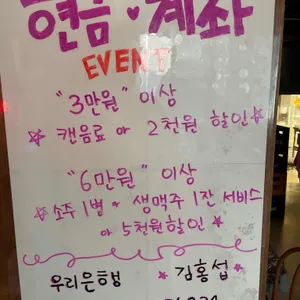 현금♥계좌
EVENT
"3만원" 이상
☆ 캔음료 or 2천원 할인 ☆
"6만원" 이상
☆ 소주 1병 or 생맥주 1잔 서비스
or 5천원할인 ☆
우리은행 ☆김홍섭☆